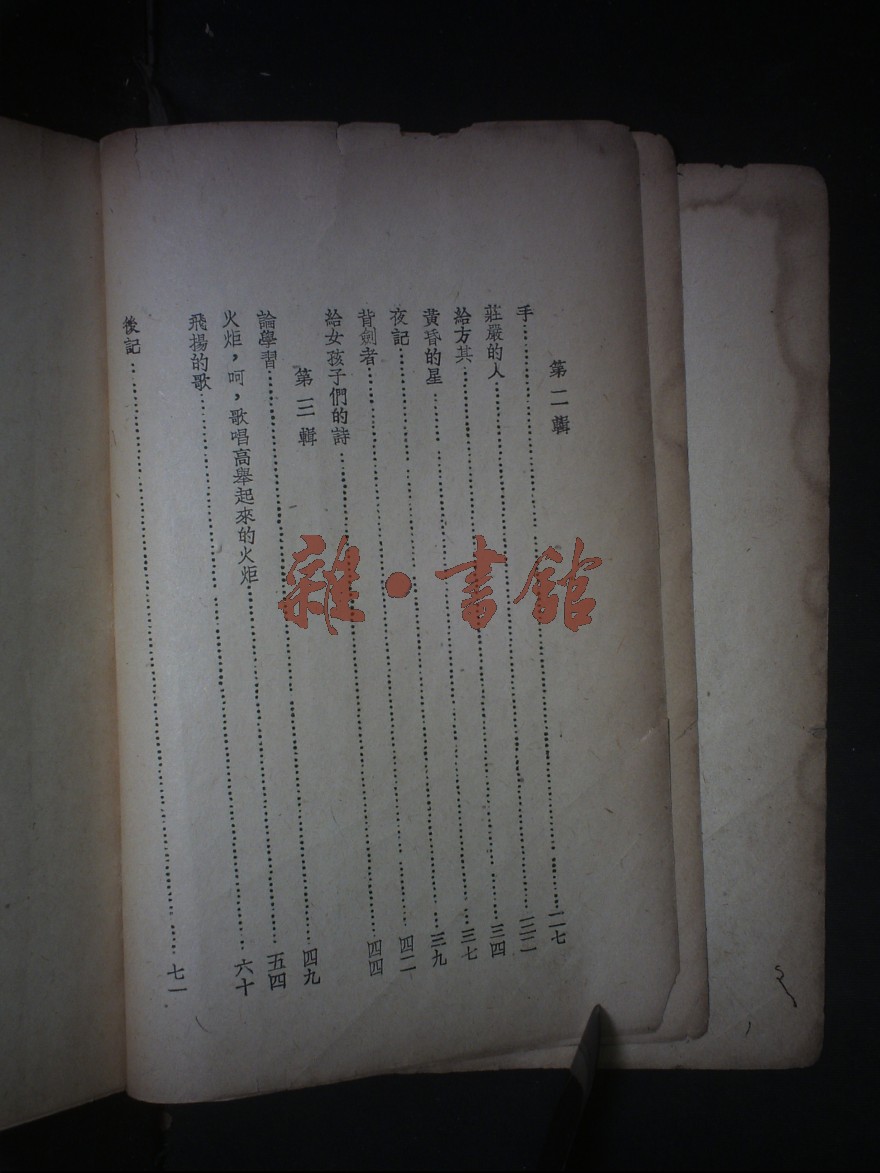 第二輯
手……二七
莊嚴的人……三二
給方其……三四
黃昏的星……三七
夜記……三九
背劍者……四二
給女孩子們的詩……四四
第三輯
論學習……四九
火炬，呵，歌唱高舉起來的火炬……五四
飛揚的歌……六十
後記……七一
雜·書館